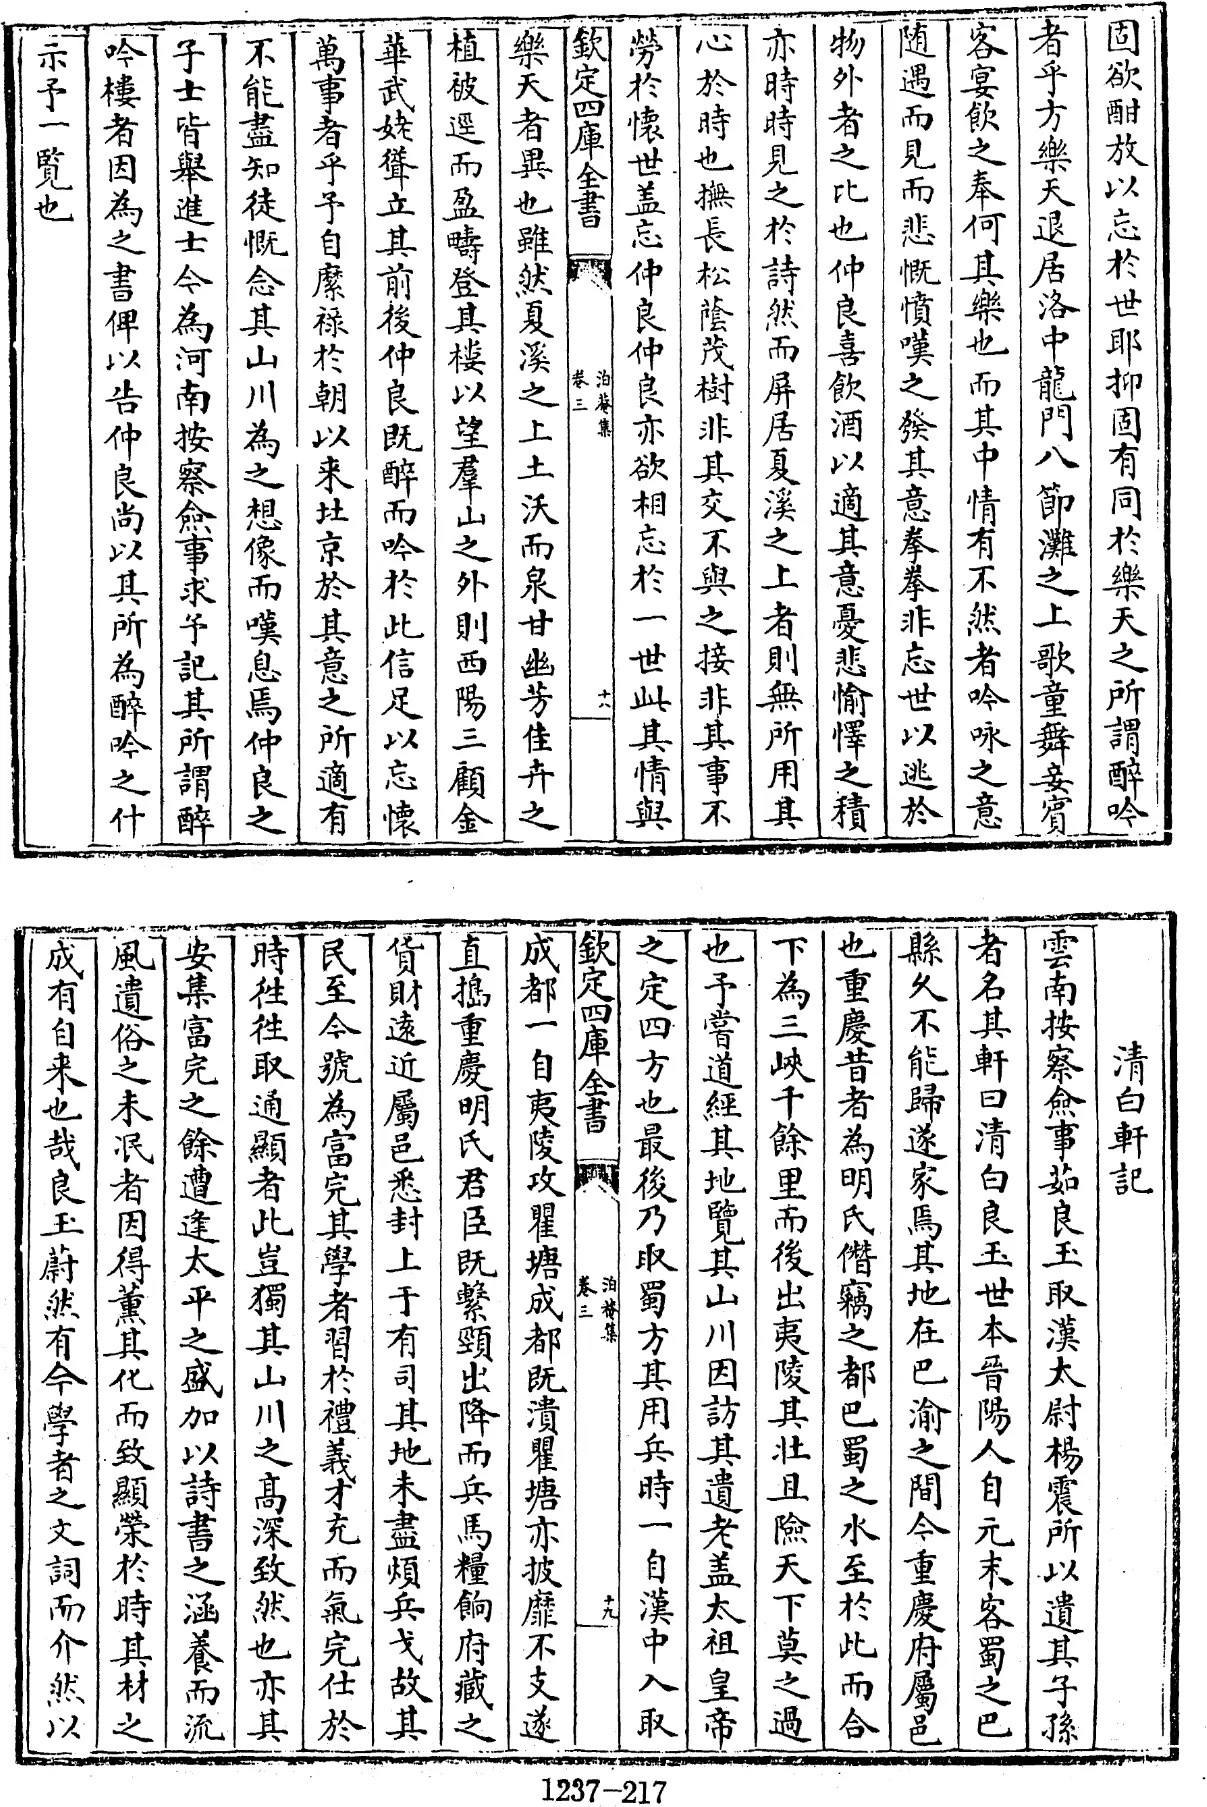 固欲酣放以忘於世耶抑固有同於樂天之所謂醉吟
者乎方樂天退居洛中龍門八節灘之上歌童舞妾賓
客宴飲之奉何其樂也而其中情有不然者吟咏之意
随遇而見而悲慨憤嘆之發其意拳拳非忘世以逃於
物外者之比也仲良喜飲酒以適其意憂悲愉懌之積
亦時時見之於詩然而屏居夏溪之上者則無所用其
心於時也撫長松蔭茂樹非其交不與之接非其事不
勞於懷世盖忘仲良仲良亦欲相忘於一世此其情與
欽定四庫全書
泊菴集
卷三
十八
樂天者異也雖然夏溪之上土沃而泉甘幽芳佳卉之
植被逕而盈疇登其樓以望羣山之外則西陽三顧金
華武姥聳立其前後仲良既醉而吟於此信足以忘懷
萬事者乎予自縻禄於朝以来北京於其意之所適有
不能盡知徒慨念其山川為之想像而嘆息焉仲良之
子士皆舉進士今為河南按察僉事求予記其所謂醉
吟樓者因為之書俾以告仲良尚以其所為醉吟之什
示予一覽也
清白軒記
雲南按察僉事茹良玉取漢太尉楊震所以遺其子孫
者名其軒曰清白良玉世本晉陽人自元末客蜀之巴
縣久不能歸遂家焉其地在巴渝之間今重慶府屬邑
也重慶昔者為明氏僭竊之都巴蜀之水至於此而合
下為三峽千餘里而後出夷陵其壯且險天下莫之過
也予嘗道經其地覽其山川因訪其遺老盖太祖皇帝
之定四方也最後乃取蜀方其用兵時一自漢中入取
欽定四庫全書
泊菴集
卷三
十九
成都一自夷陵攻瞿塘成都既潰瞿塘亦披靡不支遂
直搗重慶明氏君臣既繫頸出降而兵馬糧餉府藏之
貨財遠近屬邑悉封上于有司其地未盡煩兵戈故其
民至今號為富完其學者習於禮義才充而氣完仕於
時往往取通顯者此豈獨其山川之高深致然也亦其
安集富完之餘遭逢太平之盛加以詩書之涵養而流
風遺俗之未泯者因得薰其化而致顯榮於時其材之
成有自来也哉良玉蔚然有今學者之文詞而介然以
1237-217